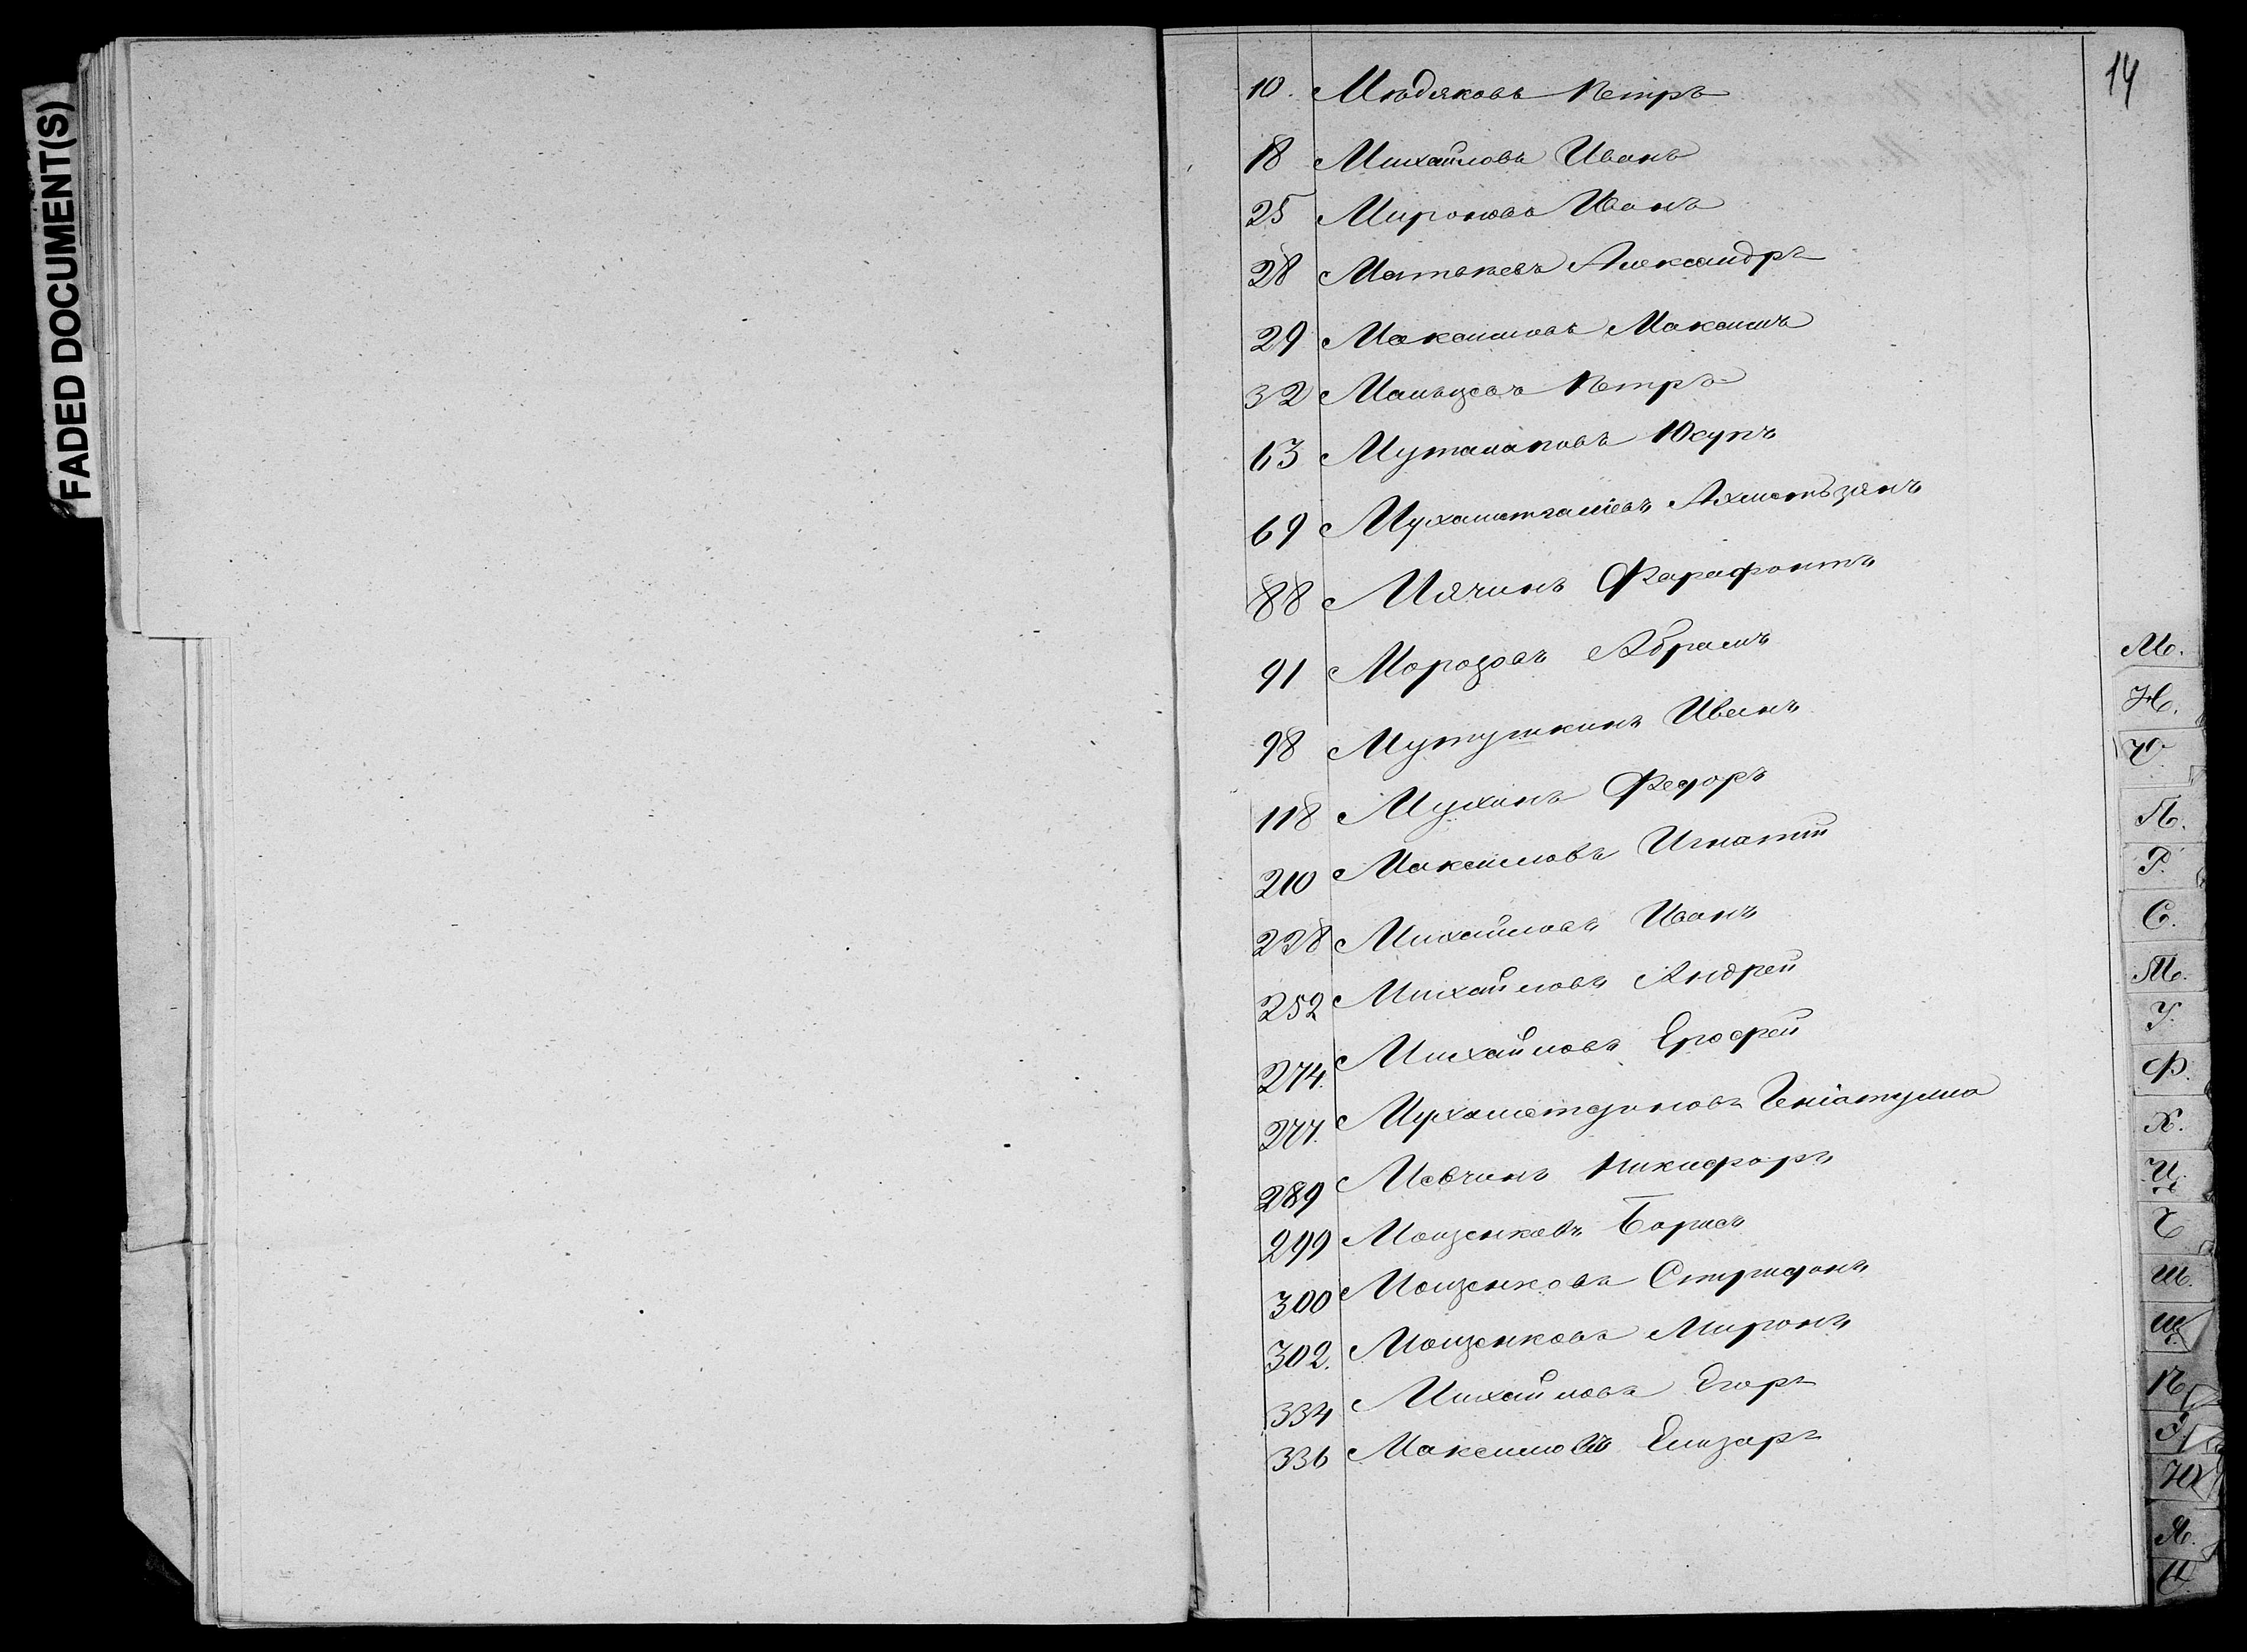 FADED DOCUMENT(S)
14
10. Мѣдяковъ Петръ
18 Михайловъ Иванъ
25 Мироновъ Иванъ
28 Матвѣевъ Александръ
29 Максимовъ Максимъ
32 Мальцевъ Петръ
63 Муталаповъ Юсупъ
69 Мухаметгаліевъ Ахметьзянъ
88 Мячинъ Фарафонтъ
91 Морозовъ Абрамъ
98 Мутушкинъ Иванъ
118 Мухинъ Федоръ
210 Максимовъ Игнатій
228 Михайловъ Иванъ
252 Михайловъ Андрей
274. Михайловъ Ерофей
277. Мухаметдиновъ Геніатулла
289 Мовчинъ Никифоръ
299 Мощенковъ Борисъ
300 Мощенковъ Спиридонъ
302. Мощенковъ Миронъ
334 Михайловъ Егоръ
336 Максимовъ Елизаръ
М.
Н.
О.
П.
Р.
С.
Т.
У.
Ф.
Х.
Ц.
Ч.
Ш.
Щ.
Ѣ
Э
Ю
Я.